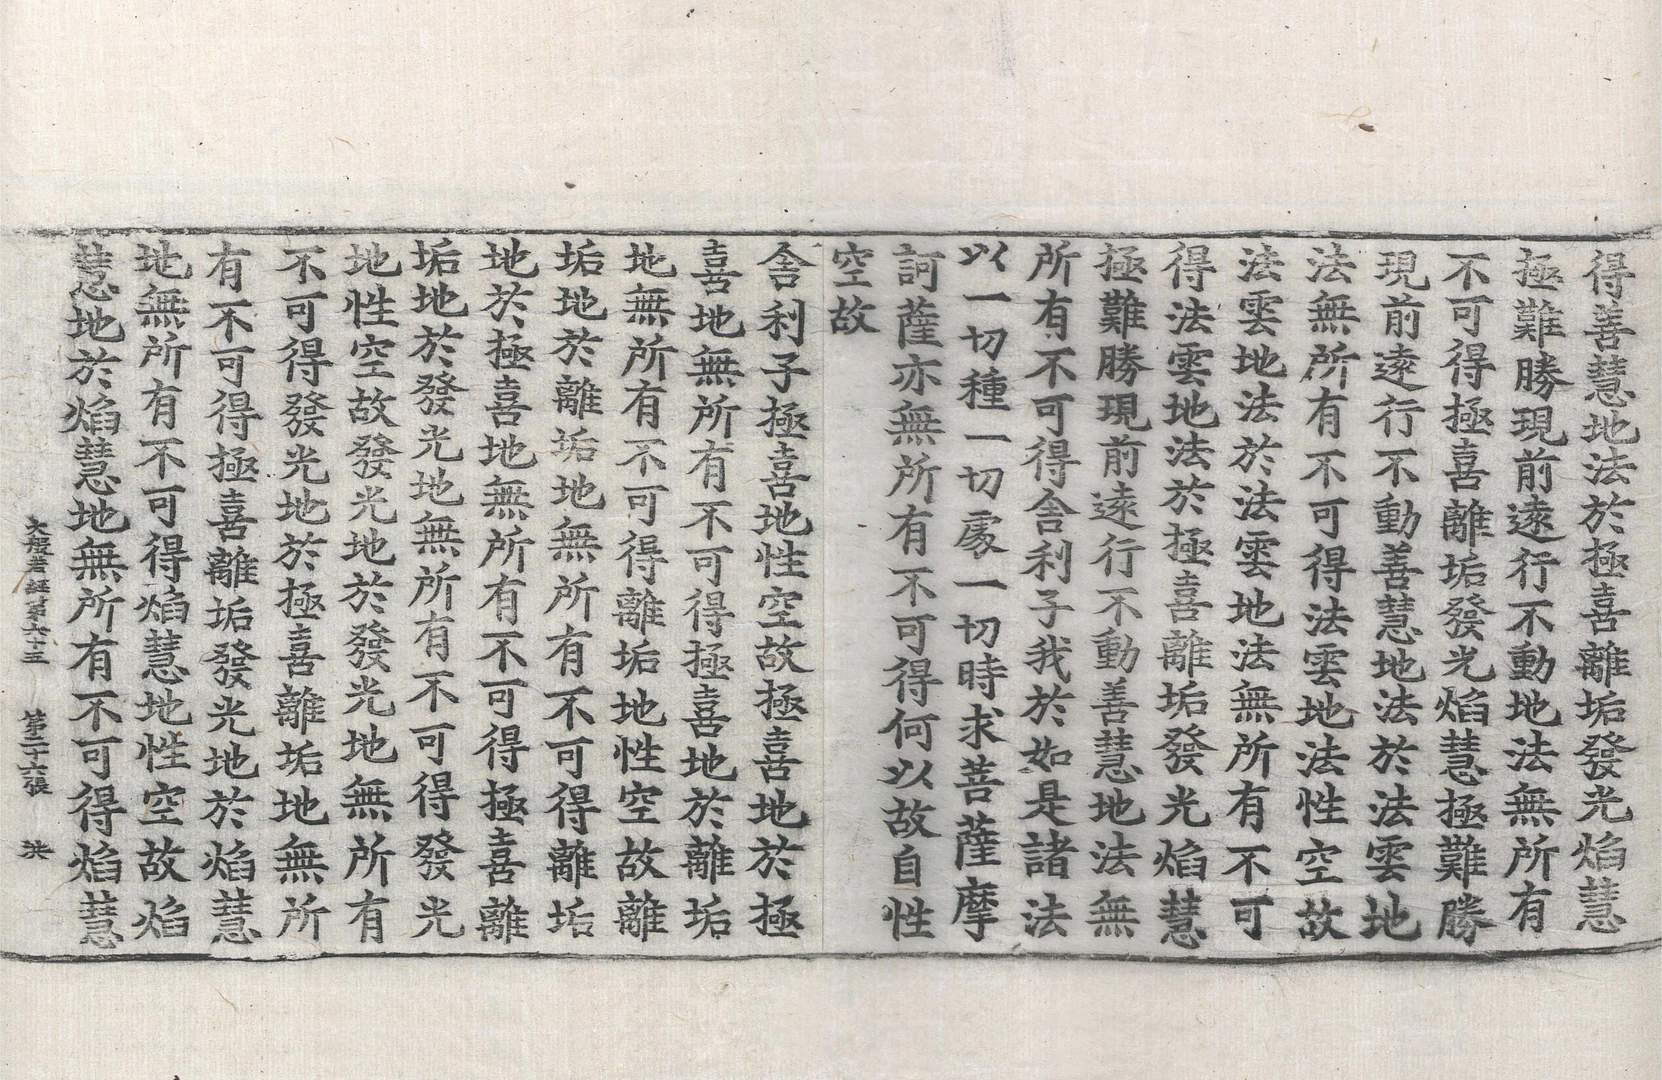 得善慧地法於極喜離垢發光焰慧
極難勝現前遠行不動地法無所有
不可得極喜離垢發光焰慧極難勝
現前遠行不動善慧地法於法雲地
法無所有不可得法雲地法性空故
法雲地法於法雲地法無所有不可
得法雲地法於極喜離垢發光焰慧
極難勝現前遠行不動善慧地法無
所有不可得舍利子我於如是諸法
以一切種一切處一切時求菩薩摩
訶薩亦無所有不可得何以故自性
空故
舍利子極喜地性空故極喜地於極
喜地無所有不可得極喜地於離垢
地無所有不可得離垢地性空故離
垢地於離垢地無所有不可得離垢
地於極喜地無所有不可得極喜離
垢地於發光地無所有不可得發光
地性空故發光地於發光地無所有
不可得發光地於極喜離垢地無所
有不可得極喜離垢發光地於焰慧
地無所有不可得焰慧地性空故焰
慧地於焰慧地無所有不可得焰慧
大般若經第六十三 第二十六張 洪